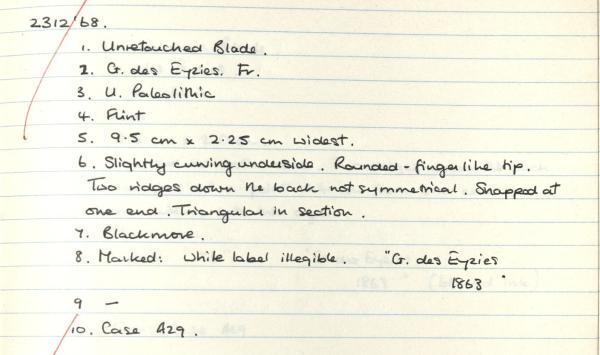 2312/68.
1. Unretouched Blade.
2. G. des Eyzies. Fr.
3. U. Paleolithic
4. Flint
5. 9.5 cm x 2.25 cm widest.
6. Slightly curving underside. Rounded - fingerlike tip.
Two ridges down the back not symmetrical. Snapped at
one end. Triangular in section.
7. Blackmore.
8. Marked: White label illegible. "G. des Eyzies
1863"
9 —
10. Case A29.